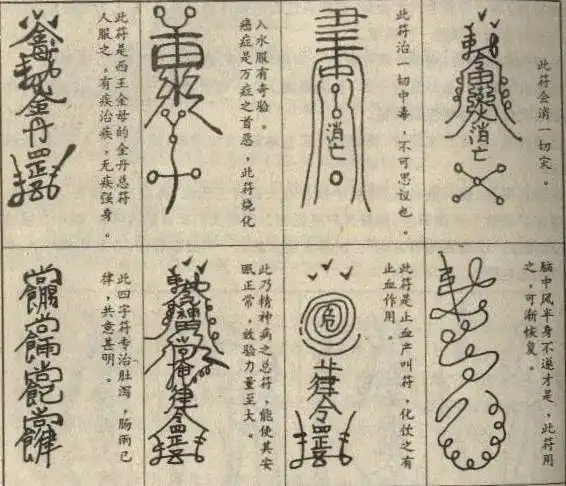 此符会消一切灾。
消亡
此符治一切中毒，不可思议也。
消亡
癌症是万症之首恶，此符烧化
入水服有奇验。
此符是西王金母的金丹总符
人服之，有疾治疾，无疾强身。
金丹
脑中风半身不遂才是，此符用
之，可渐恢复。
此符是止血产叫符，化饮之有
止血作用。
律令
此乃精神病之总符，能使其安
眼正常，效验力量至大。
律令
此四字符专治肚泻，肠雨已
律，共意甚明。